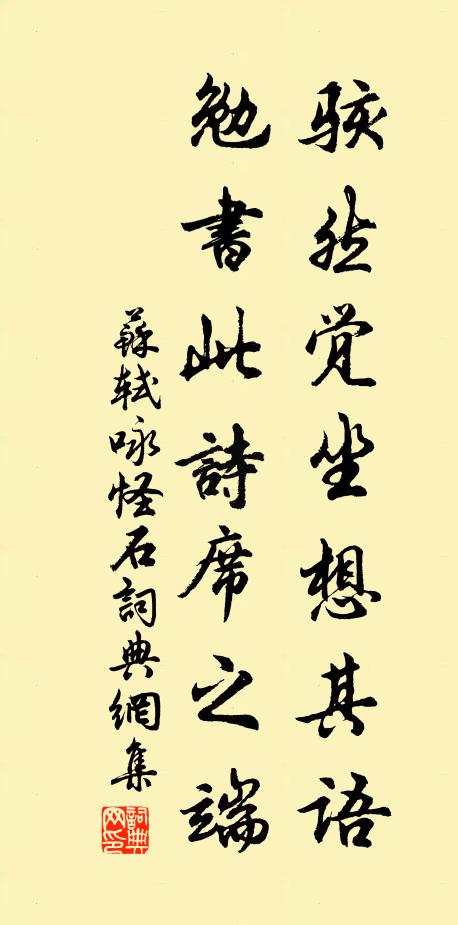 骇然觉坐想其语
勉書此詩席之端
蘇軾咏怪石詞典網集
詞典網印